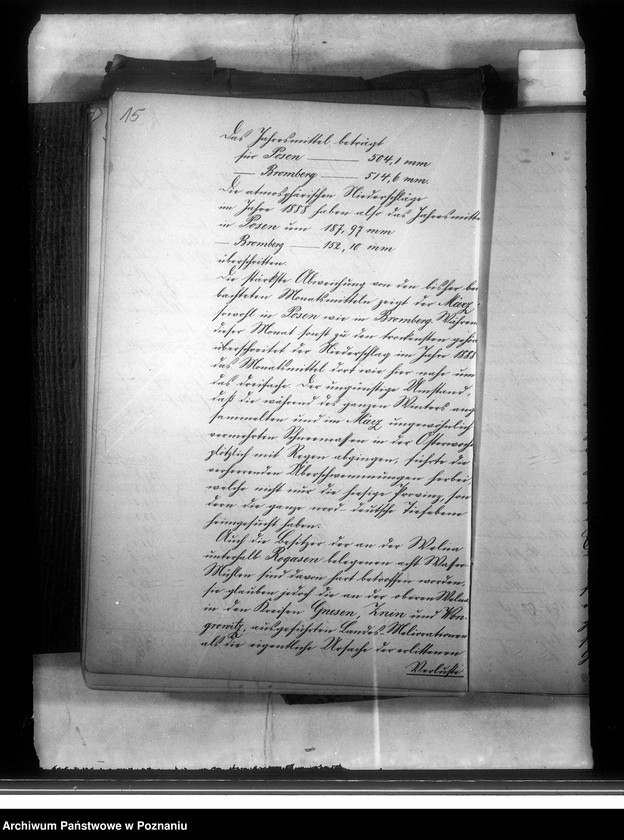 15
Das Jahresmittel beträgt
für Posen —— 504,1 mm
— Bromberg —— 514,6 mm.
Die atmosphärischen Niederschläge
im Jahre 1888 haben also das Jahresmittel
in Posen um 187,97 mm
— Bromberg —— 152,10 mm
überschritten.
Die stärkste Abweichung von den bisher beo
bachteten Monatsmitteln zeigt der März
sowohl in Posen wie in Bromberg. Während
dieser Monat sonst zu den trockensten gehört
überschreitet der Niederschlag im Jahre 1888
das Monatsmittel dort wie hier mehr um
das dreifache. Der ungünstige Umstand,
daß die während des ganzen Winters ange
sammelten und im März ungewöhnlich
vermehrten Schneemassen in der Osterwoche
plötzlich mit Regen abgingen, führte die
verheerenden Überschwemmungen herbei,
welche nicht nur die hiesige Provinz, son
dern die ganze nord deutsche Tiefebene
heimgesucht haben.
Auch die Besitzer der an der Welna
unterhalb Rogasen belegenen acht Wasser
Mühlen sind davon hart betroffen worden,
sie glauben jedoch die an der oberen Welna
in den Kreisen Gnesen, Znin und Won
growitz, ausgeführten Landes-Meliorationen
als die eigentliche Ursache der erlittenen
Verluste
Archiwum Państwowe w Poznaniu